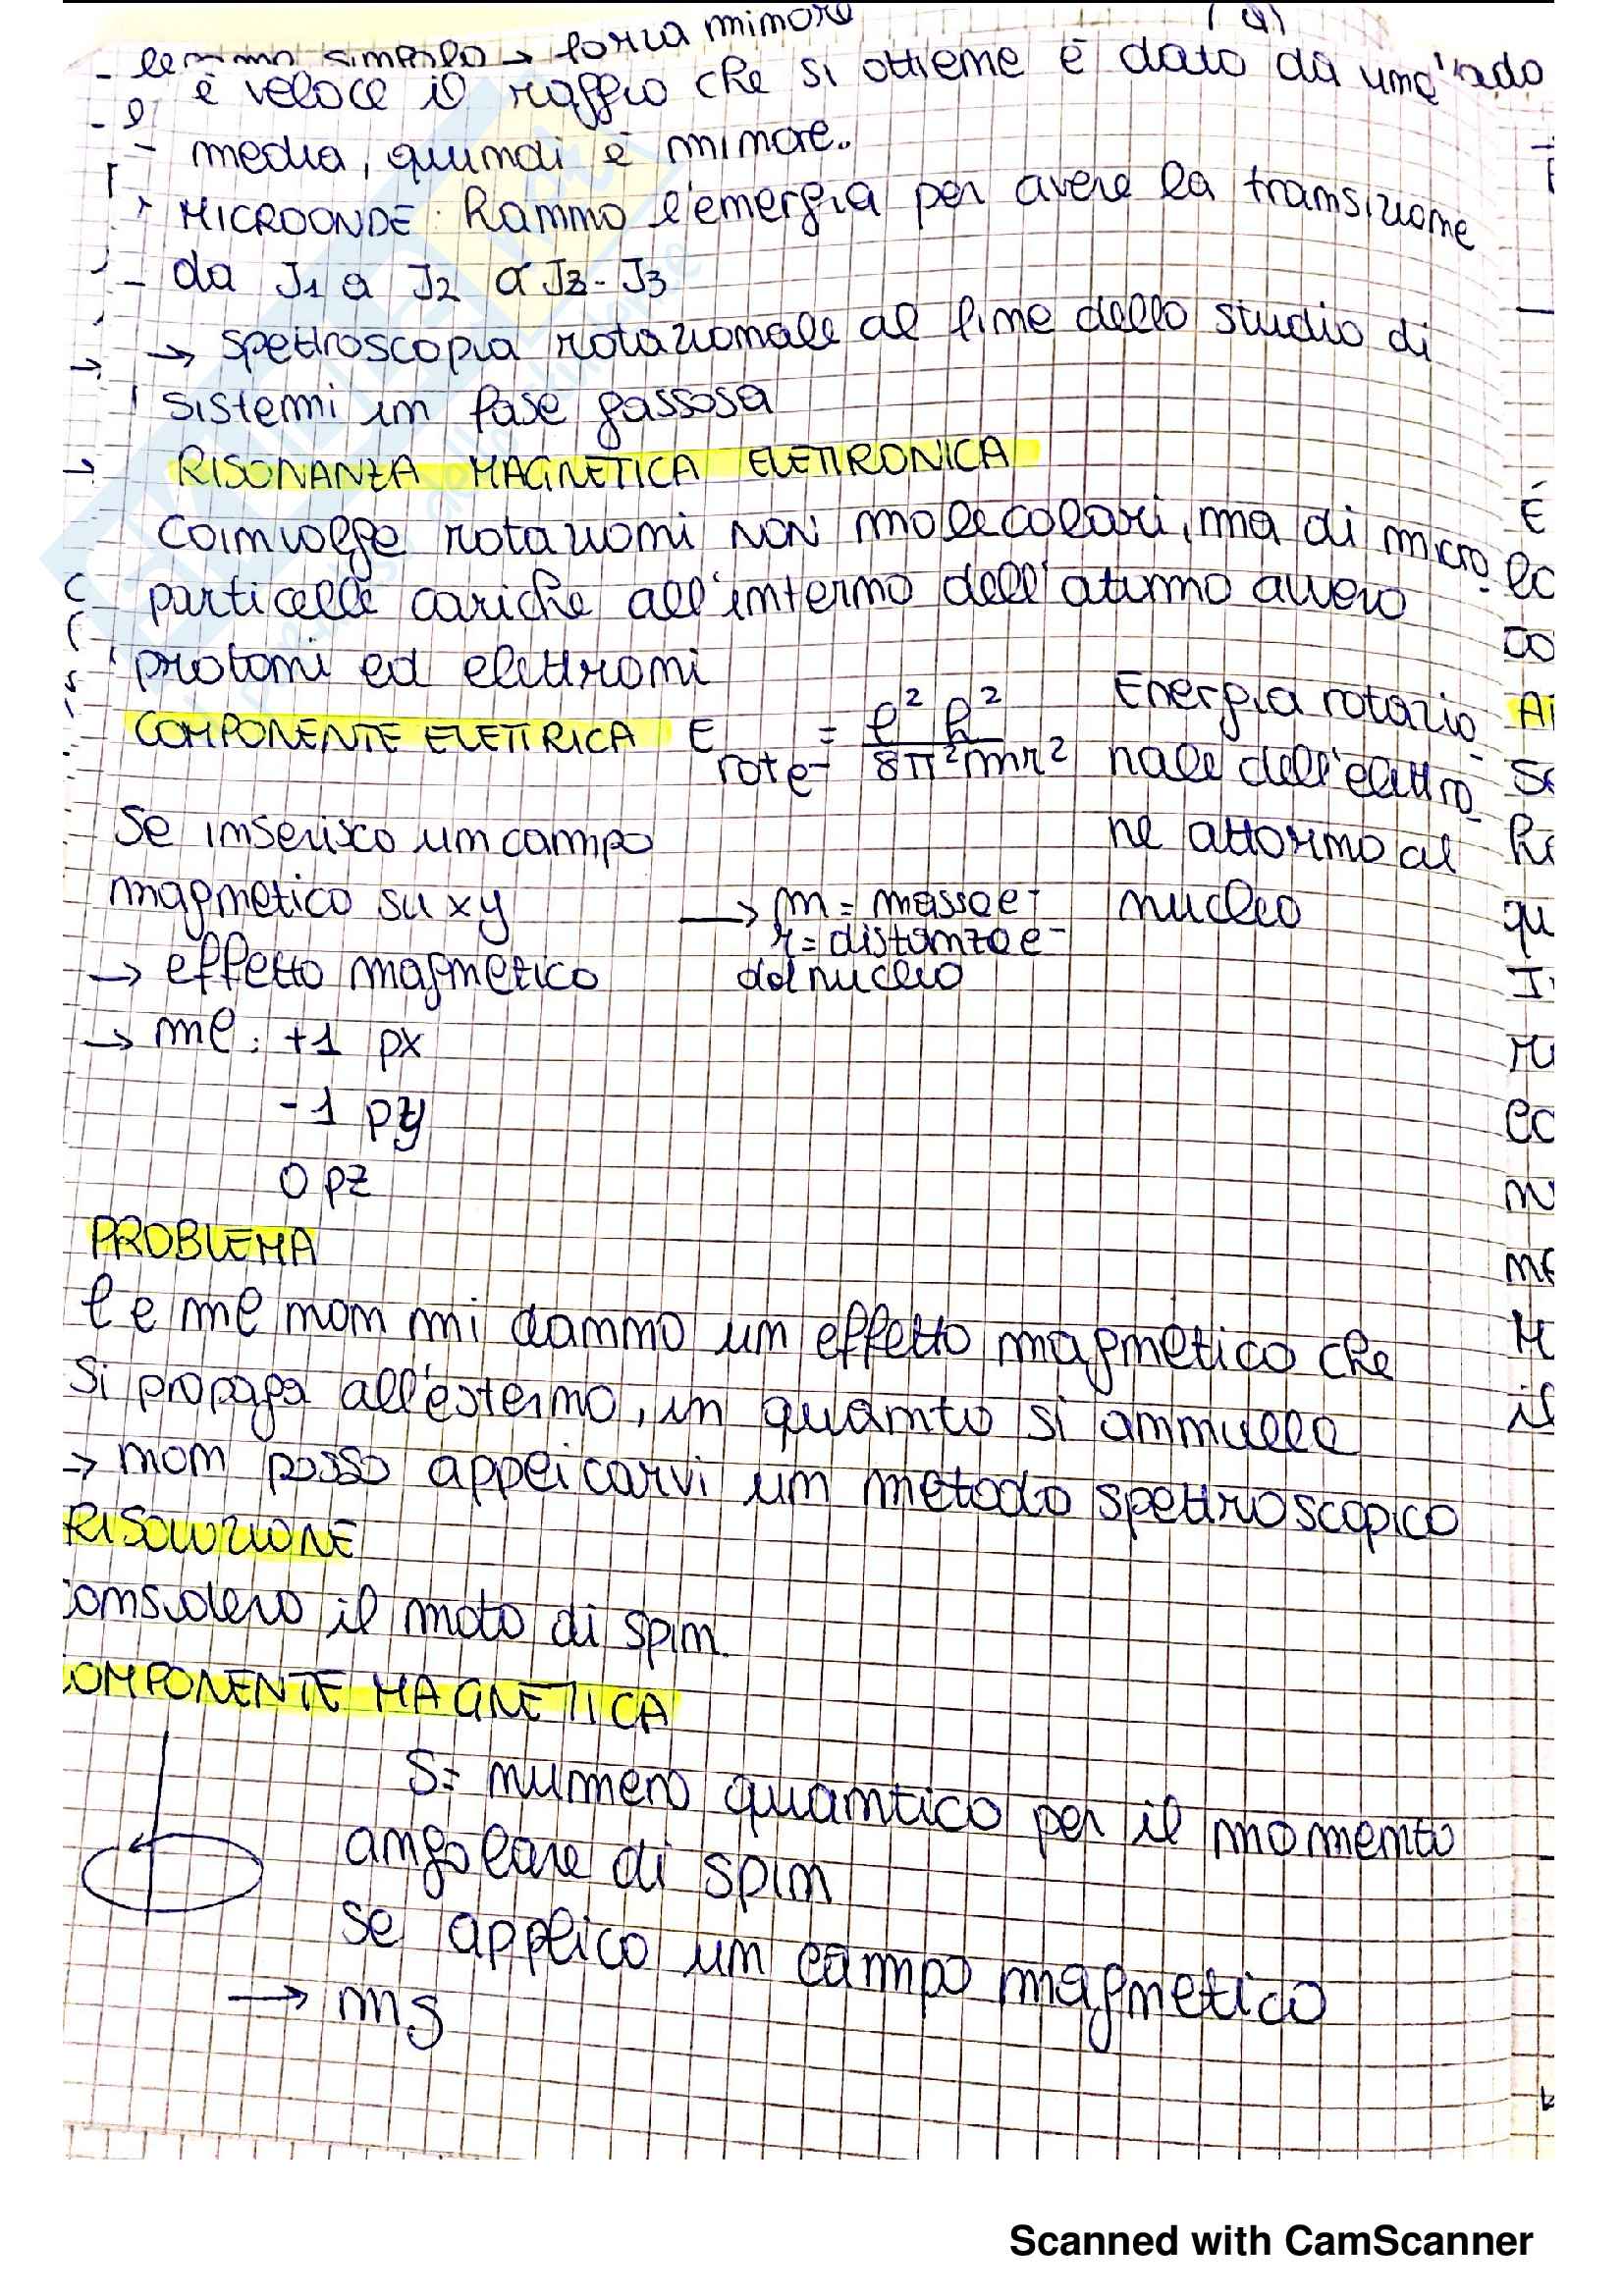 forza minore
è veloce il raggio che si ottiene è dato da una
media, quindi è minore.
MICROONDE: hanno l'energia per avere la transizione
da J1 a J2 o J3
→ spettroscopia rotazionale al fine dello studio di
sistemi in fase gassosa
RISONANZA MAGNETICA ELETTRONICA
Coinvolge rotazioni NON molecolari, ma di micro
particelle cariche all'interno dell'atomo ovvero
protoni ed elettroni
COMPONENTE ELETTRICA E rot e- = l² h² / 8π²mr²
Energia rotazio
nale dell'elettro
ne attorno al
nucleo
Se inserisco un campo
magnetico su xy
→ m = massa e-
r = distanza e-
dal nucleo
→ effetto magnetico
→ ml: +1 px
-1 py
0 pz
PROBLEMA
l e ml non mi danno un effetto magnetico che
si propaga all'esterno, in quanto si annulla
→ non posso applicarvi un metodo spettroscopico
RISOLUZIONE
considero il moto di spin.
COMPONENTE MAGNETICA
S= numero quantico per il momento
angolare di spin
se applico un campo magnetico
→ ms
Scanned with CamScanner